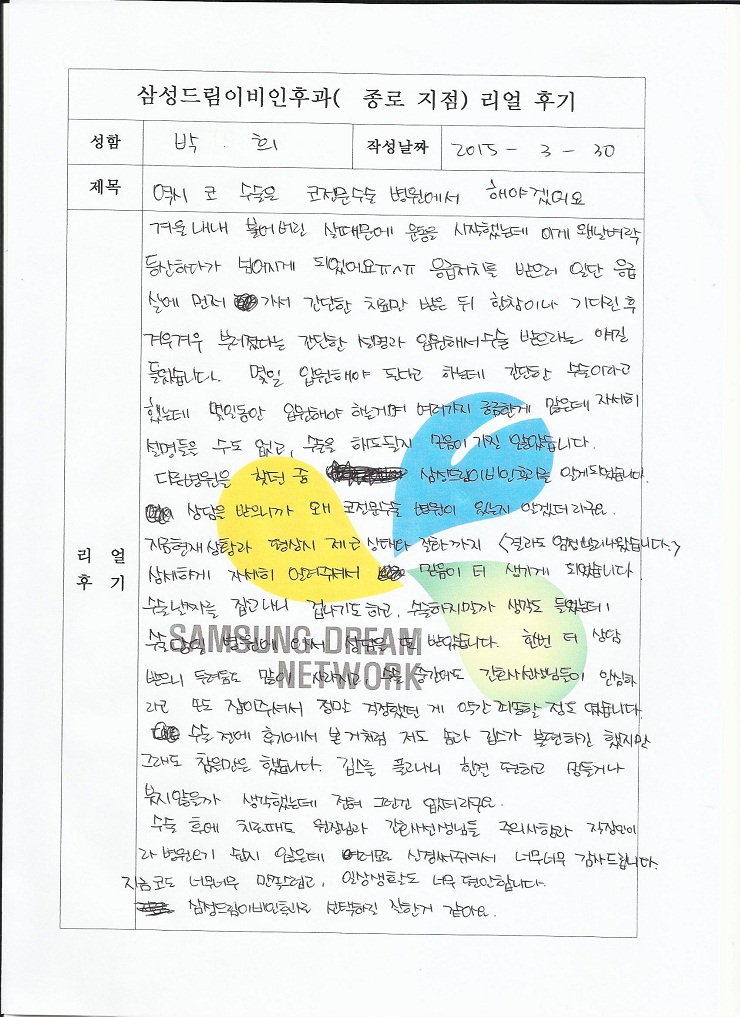 삼성드림이비인후과( 종로 지점) 리얼 후기
성함 박 . 희 작성날짜 2015 - 3 - 30
제목 역시 코 수술은 코전문수술 병원에서 해야겠어요
겨울내내 불어버린 살때문에 운동을 시작했는데 이게 왠날벼락
등산하다가 넘어지게 되었어요ㅠㅅㅠ 응급처치를 받으러 일단 응급
실에 먼저 가서 간단한 치료만 받은 뒤 한참이나 기다린 후
겨우겨우 부러졌다는 간단한 설명과 입원해서 수술 받으라는 얘길
들었습니다. 몇일 입원해야 된다고 하는데 간단한 수술이라고
했는데 몇일동안 입원해야 하는거며 여러가지 궁금한게 많은데 자세히
설명들을 수도 없고, 수술을 해도될지 믿음이 가질 않았습니다.
다른병원을 찾던 중 삼성드림이비인후과를 알게되었습니다.
상담을 받으니까 왜 코전문수술 병원이 있는지 알겠더라구요.
지금현재상황과 평상시 제 코 상태와 결과까지 <결과도 엄청빨리나왔습니다.>
상세하게 자세히 알려주셔서 믿음이 더 생기게 되었습니다.
수술날짜를 잡고나니 겁나기도하고, 수술하지말까 생각도 들었는데
수술 당일 병원에 와서 상담을 또 받았습니다. 한번 더 상담
받으니 두려움도 많이 사라지고, 수술 중간에도 간호사선생님들이 안심하
라고 손도 잡아주셔서 정말 걱정했던 게 약간 허무할 정도 였습니다.
수술 전에 후기에서 본 거처럼 저도 솜과 깁스가 불편하긴 했지만
그래도 참을만은 했습니다. 깁스를 풀고나니 한결 편하고 멍들거나
붓지않을까 생각했는데 전혀 그런건 없더라구요.
수술 후에 치료때도 원장님과 간호사선생님들 주의사항과 직장인이
라 병원오기 쉽지 않은데 여러모로 신경써주셔서 너무너무 감사드립니다.
지금 코도 너무너무 만족스럽고, 일상생활도 너무 편안합니다.
삼성드림이비인후과를 선택하길 잘한거 같아요.
리 얼
후 기
SAMSUNG DREAM
NETWORK